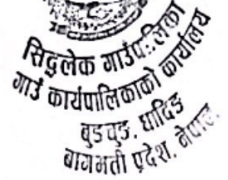 सिद्धलेक गाउँपालिका
गाउँ कार्यपालिकाको कार्यालय
बुडचुङ, धादिङ
बागमती प्रदेश, नेपाल